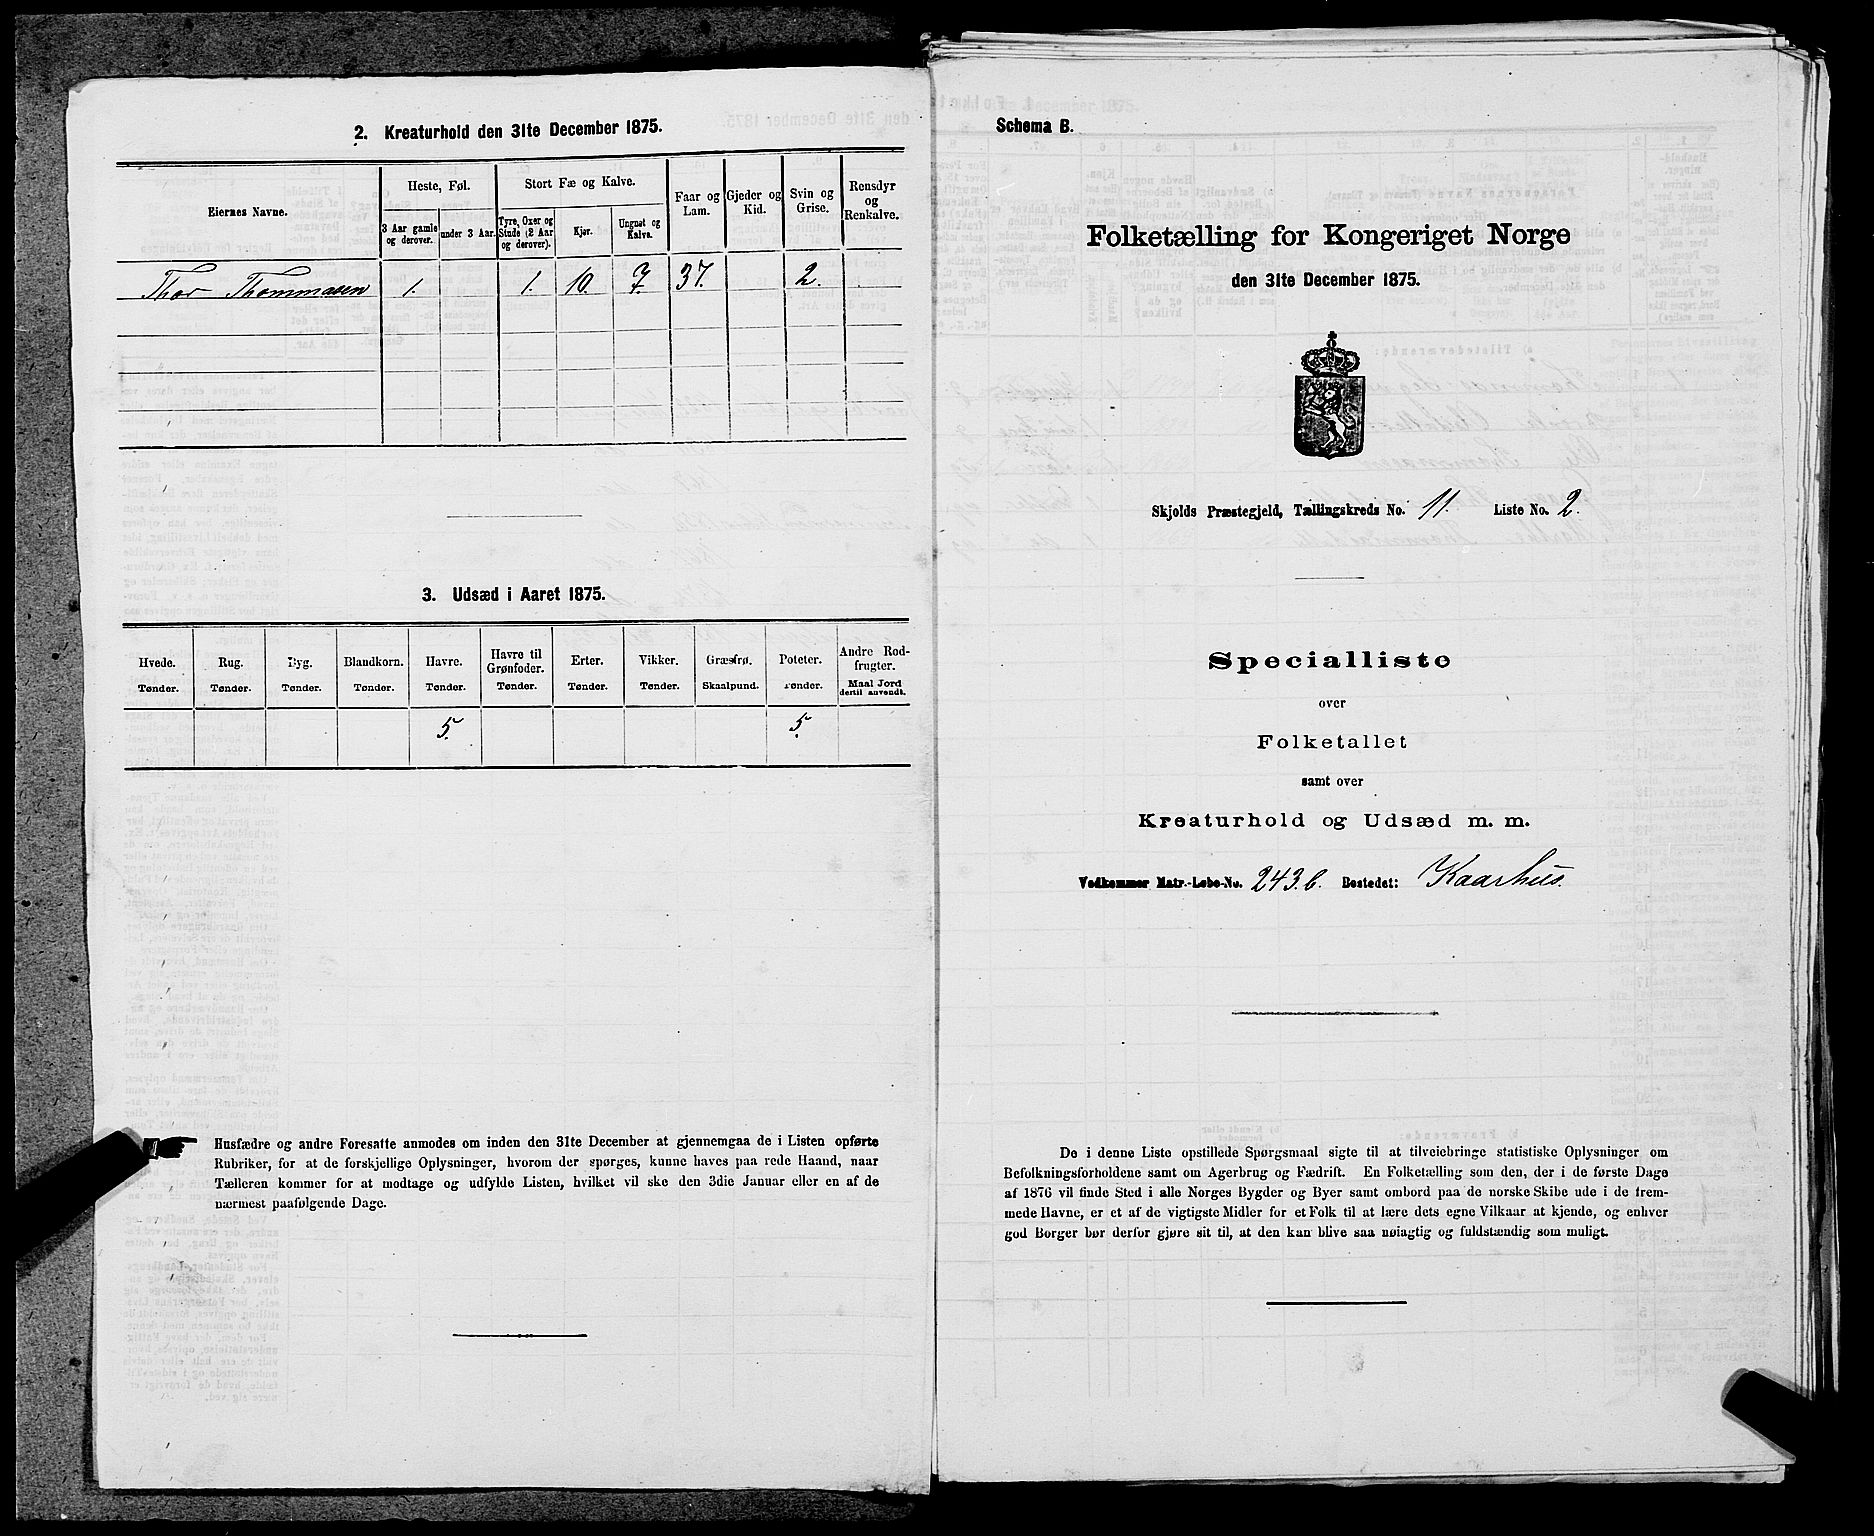 2. Kreaturhold den 31te December 1875.
Eiernes Navne.
Heste, Føl.
3 Aar gamle og derover.
under 3 Aar.
Stort Fæ og Kalve.
Tyre, Oxer og Stude (2 Aar og derover).
Kjør.
Ungnøt og Kalve.
Faar og Lam.
Gjeder og Kid.
Svin og Grise.
Rensdyr og Renkalve.
Thor Thommasen 1. 1. 10. 7. 37. 2.
3. Udsæd i Aaret 1875.
Hvede. Rug. Byg. Blandkorn. Havre. Havre til Grønfoder. Erter. Vikker. Græsfrø. Poteter. Andre Rodfrugter.
Tønder. Tønder. Tønder. Tønder. Tønder. Tønder. Tønder. Tønder. Skaalpund. Tønder. Maal Jord dertil anvendt.
5. 5.
Husfædre og andre Foresatte anmodes om inden den 31te December at gjennemgaa de i Listen opførte
Rubriker, for at de forskjellige Oplysninger, hvorom der spørges, kunne haves paa rede Haand, naar
Tælleren kommer for at modtage og udfylde Listen, hvilket vil ske den 3die Januar eller en af de
nærmest paafølgende Dage.
Schema B.
Folketælling for Kongeriget Norge
den 31te December 1875.
Skjolds Præstegjeld, Tællingskreds No. 11. Liste No. 2.
Specialliste
over
Folketallet
samt over
Kreaturhold og Udsæd m. m.
Vedkommer Matr.-Løbe-No. 243.b. Bostedet: Kaarhus.
De i denne Liste opstillede Spørgsmaal sigte til at tilveiebringe statistiske Oplysninger om
Befolkningsforholdene samt om Agerbrug og Fædrift. En Folketælling som den, der i de første Dage
af 1876 vil finde Sted i alle Norges Bygder og Byer samt ombord paa de norske Skibe ude i de frem-
mede Havne, er et af de vigtigste Midler for et Folk til at lære dets egne Vilkaar at kjende, og enhver
god Borger bør derfor gjøre sit til, at den kan blive saa nøiagtig og fuldstændig som muligt.